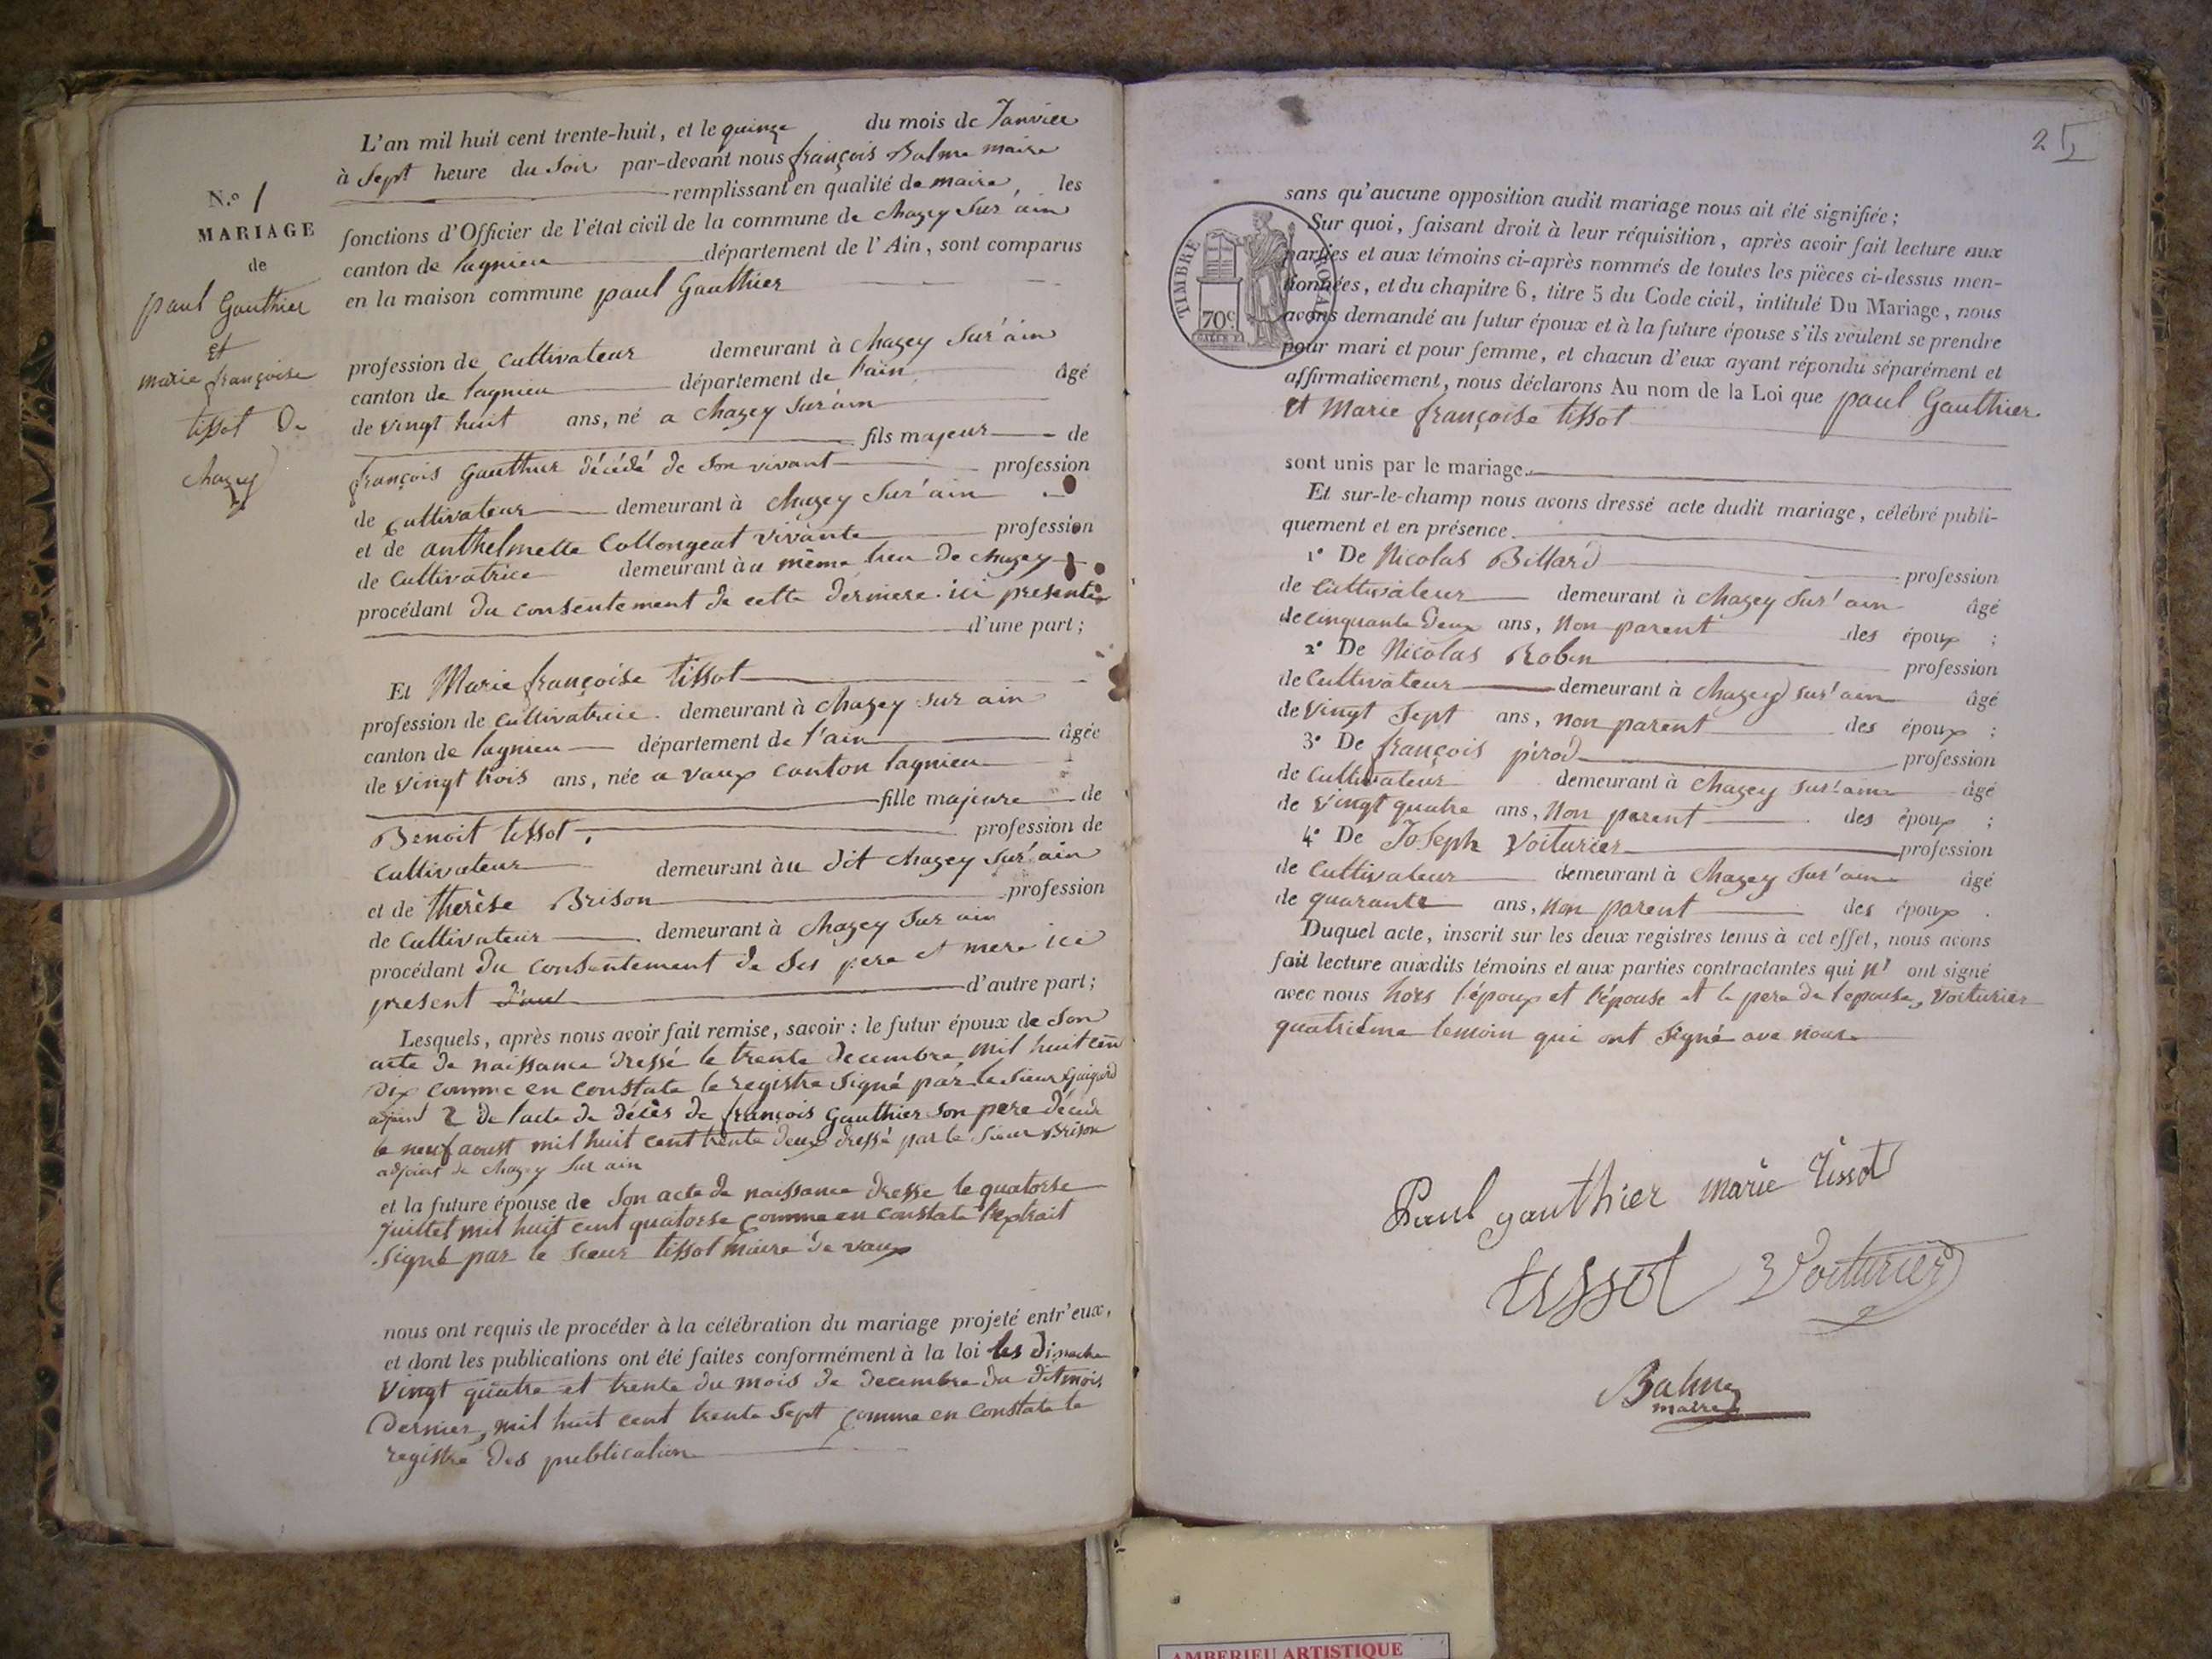 N.º 1
MARIAGE
de
paul Gauthier
et
marie françoise
tissot de
chazey
L'an mil huit cent trente-huit, et le quinze du mois de Janvier
à Sept heure du Soir par-devant nous françois Balme maire
remplissant en qualité de maire, les
fonctions d'Officier de l'état civil de la commune de chazey Sur'ain
canton de lagnieu département de l'Ain, sont comparus
en la maison commune paul Gauthier
profession de cultivateur demeurant à chazey Sur'ain
canton de lagnieu département de l'ain âgé
de vingt huit ans, né a chazey Sur'ain
fils majeur de
françois Gauthier décédé de Son vivant profession
de cultivateur demeurant à chazey Sur'ain
et de anthelmette Collongeat vivante profession
de Cultivatrice demeurant à u même lieu de chazey
procédant du consentement de cette derniere ici presente
d'une part;
Et Marie françoise tissot
profession de cultivatrice demeurant à chazey Sur ain
canton de lagnieu département de l'ain âgée
de vingt trois ans, née a vaux canton lagnieu
fille majeure de
Benoit tissot, profession de
cultivateur demeurant à u dit chazey Sur'ain
et de therèse Brison profession
de Cultivateur demeurant à chazey Sur ain
procédant du consentement de Ses pere et mere ici
present d'aut d'autre part;
Lesquels, après nous avoir fait remise, savoir: le futur époux de Son
acte de naissance dressé le trente decembre mil huit cen
dix comme en constate le registre signé par le Sieur
adjoint 2 de l'acte de décès de françois Gauthier son pere décédé
le neuf aoust mil huit cent trente deux dressé par le Sieur Brison
adjoint de chazey Sur ain
et la future épouse de Son acte de naissance dresse le quatorse
Juillet mil huit cent quatorse comme en constate l'extrait
Signé par le Sieur tissot maire de vaux
nous ont requis de procéder à la célébration du mariage projeté entr'eux,
et dont les publications ont été faites conformément à la loi les dimache
vingt quatre et trente du mois de decembre du dit mois
Dernier, mil huit cent trente Sept comme en Constate le
registre des publication
25
TIMBRE ROYAL
70c
sans qu'aucune opposition audit mariage nous ait été signifiée;
Sur quoi, faisant droit à leur réquisition, après avoir fait lecture aux
parties et aux témoins ci-après nommés de toutes les pièces ci-dessus men-
tionnées, et du chapitre 6, titre 5 du Code civil, intitulé Du Mariage, nous
avons demandé au futur époux et à la future épouse s'ils veulent se prendre
pour mari et pour femme, et chacun d'eux ayant répondu séparément et
affirmativement, nous déclarons Au nom de la Loi que paul Gauthier
et Marie françoise tissot
sont unis par le mariage.
Et sur-le-champ nous avons dressé acte dudit mariage, célébré publi-
quement et en présence.
1º De Nicolas Billard profession
de Cultivateur demeurant à chazey Sur'ain âgé
de cinquante deux ans, Non parent des époux ;
2º De Nicolas Robin profession
de Cultivateur demeurant à chazey sur'ain âgé
de vingt Sept ans, non parent des époux ;
3º De françois pirod profession
de Cultivateur demeurant à chazey sur'ain âgé
de vingt quatre ans, Non parent des époux ;
4º De Joseph Voiturier profession
de Cultivateur demeurant à chazey Sur'ain âgé
de quarante ans, non parent des époux .
Duquel acte, inscrit sur les deux registres tenus à cet effet, nous avons
fait lecture auxdits témoins et aux parties contractantes qui n' ont signé
avec nous hors l'époux et l'épouse et le pere de l'epouse, Voiturier
quatrième temoin qui ont Signé ave nous
Paul gauthier marie tissot
tissot Voiturier
Balme
maire
AMBERIEU ARTISTIQUE